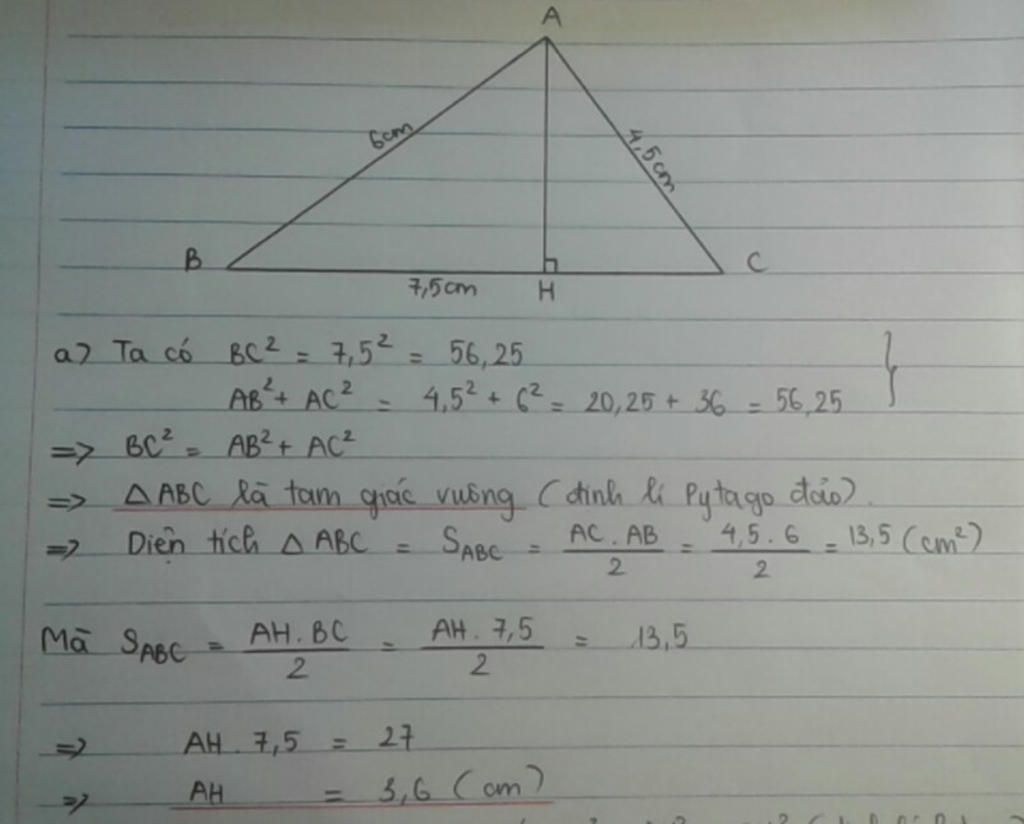 A
6cm
4,5cm
B
C
7,5cm
H
a) Ta có BC² = 7,5² = 56,25
AB² + AC² = 4,5² + 6² = 20,25 + 36 = 56,25 }
=> BC² = AB² + AC²
=> △ABC là tam giác vuông (định lí Pytago đảo).
=> Diện tích △ABC = S_ABC = AC.AB/2 = 4,5.6/2 = 13,5 (cm²)
Mà S_ABC = AH.BC/2 = AH.7,5/2 = 13,5
=> AH.7,5 = 27
=> AH = 3,6 (cm)